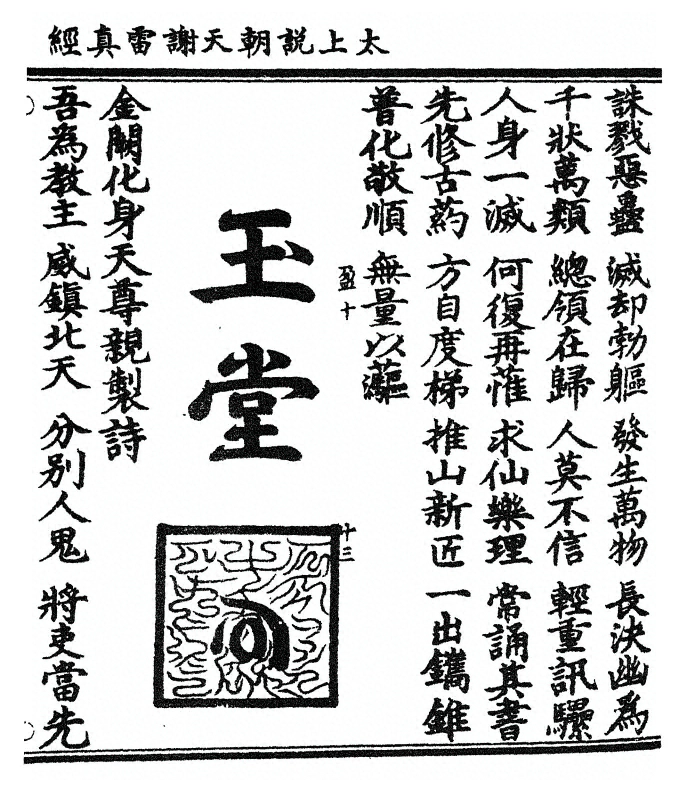 太上説朝天謝雷真經
誅戮惡蠱 滅却勃軀 發生萬物 長決幽為
千狀萬類 總領在歸 人莫不信 輕重訊騾
人身一滅 何復再 求仙樂理 常誦其書
先修古药 方自度梯 推山新匠 一出鑴錐
普化敬順 無量以
盈十
玉堂
十三
金闕化身天尊親製詩
吾為教主 威鎮北天 分別人鬼 將吏當先